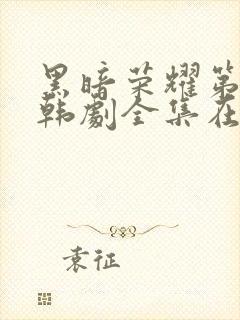 黑暗荣耀第
韩剧全集在
袁征